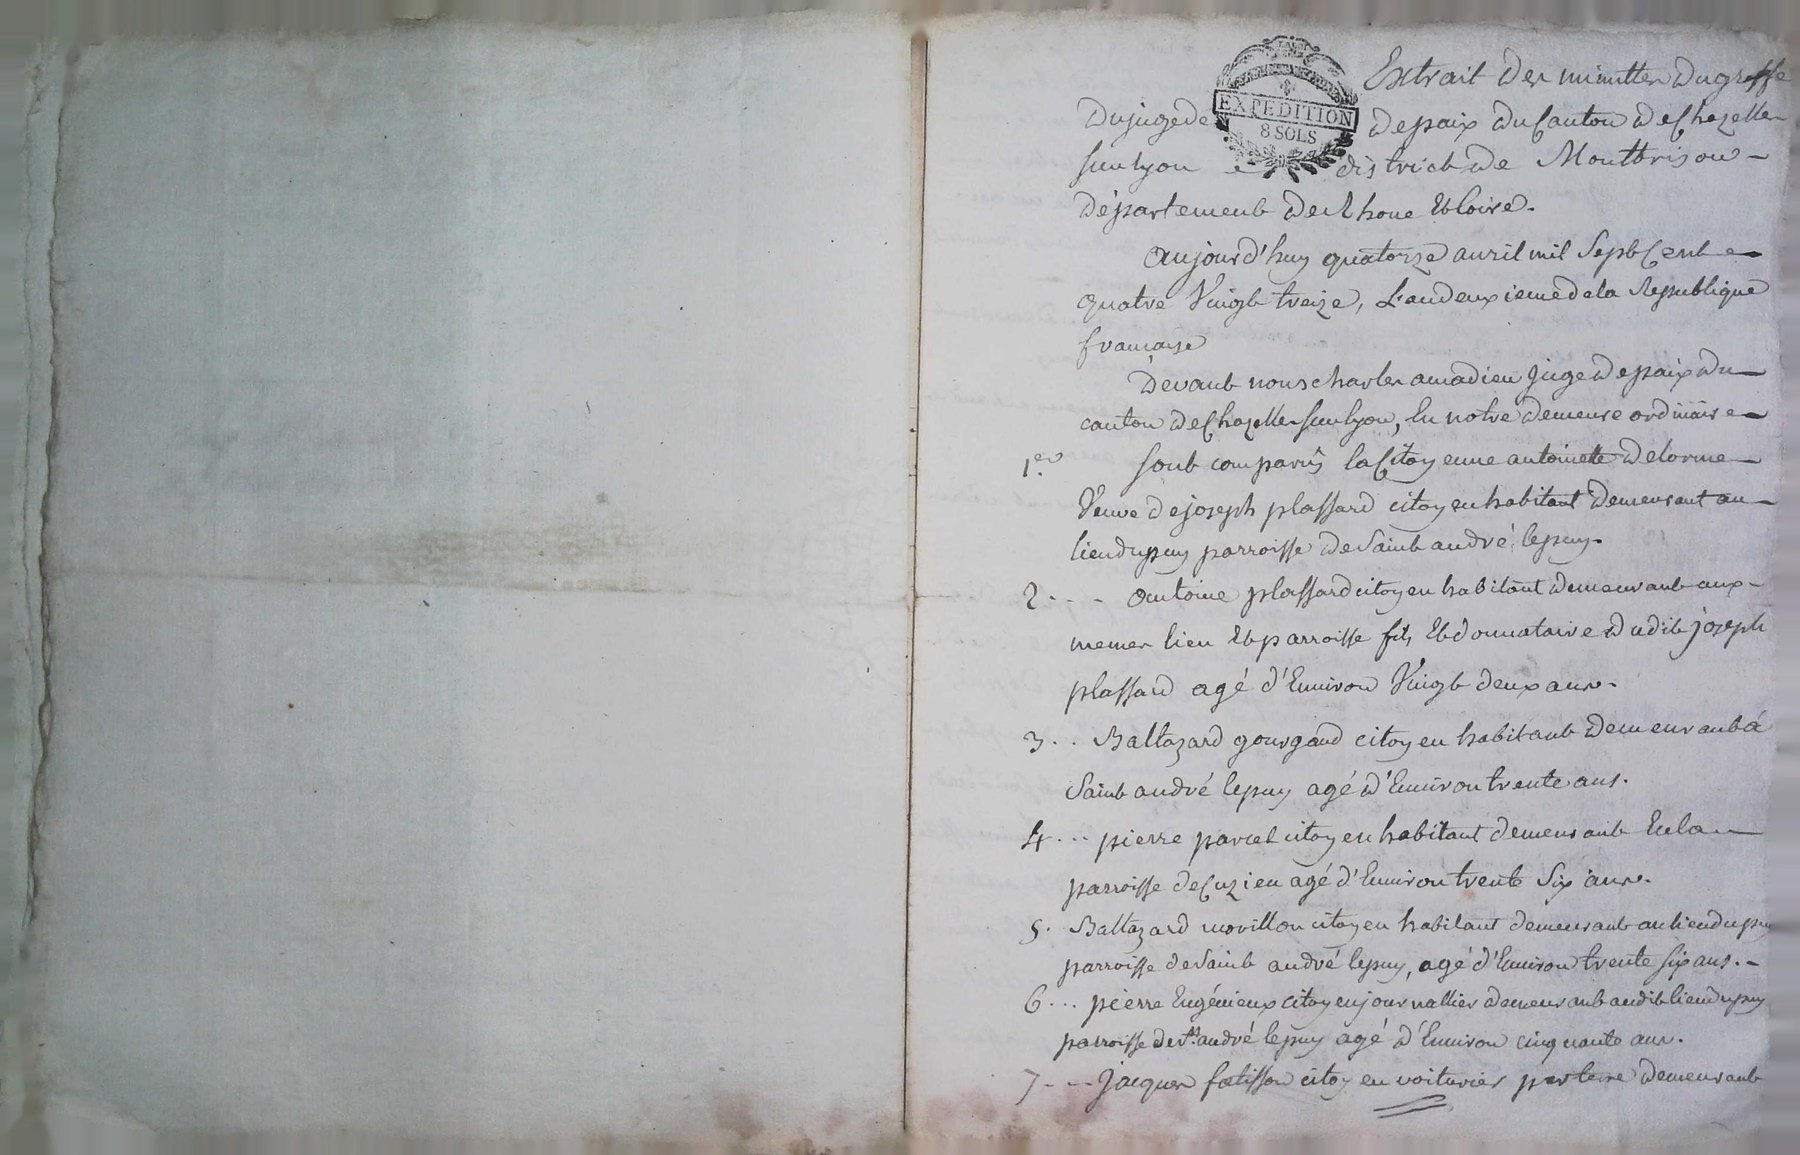 Extrait des minuttes du greffe
EXPEDITION
8 SOLS
du juge de de paix du Canton de Chazelles
sur lyon district de Montbrison
département de Rhone et loire.
Aujourd'huy quatorze avril mil Sept Cent
quatre Vingt treize, L'an deuxieme de la Republique
francaise
Devant nous charles amadieu Juge de paix du
canton de Chazelles sur lyon, En notre demeure ordinaire
1.er Sont comparus la Citoyenne antoinette delorme
Veuve de joseph plassard citoyen habitant demeurant au
lieu du puy parroisse de Saint andré le puy.
2 - - - Antoine plassard citoyen habitant demeurant aux
memes lieu et parroisse fils et donnataire dudit joseph
plassard agé d'Environ Vingt deux ans.
3 . . Baltazard gourgaud citoyen habitant demeurant à
Saint andré le puy agé d'Environ trente ans.
4 . . . pierre parcel citoyen habitant demeurant En la
parroisse de Cuzieu agé d'Environ trente Six ans.
5 . Baltazard morillon citoyen habitant demeurant au lieu du puy
parroisse de Saint andré le puy, agé d'Environ trente six ans.
6 . . . pierre Eugénieux citoyen journallier demeurant audit lieu du puy
parroisse de St. andré le puy agé d'Environ cinquante ans.
7 - - - Jacques fatisson citoyen voiturier par terre demeurant